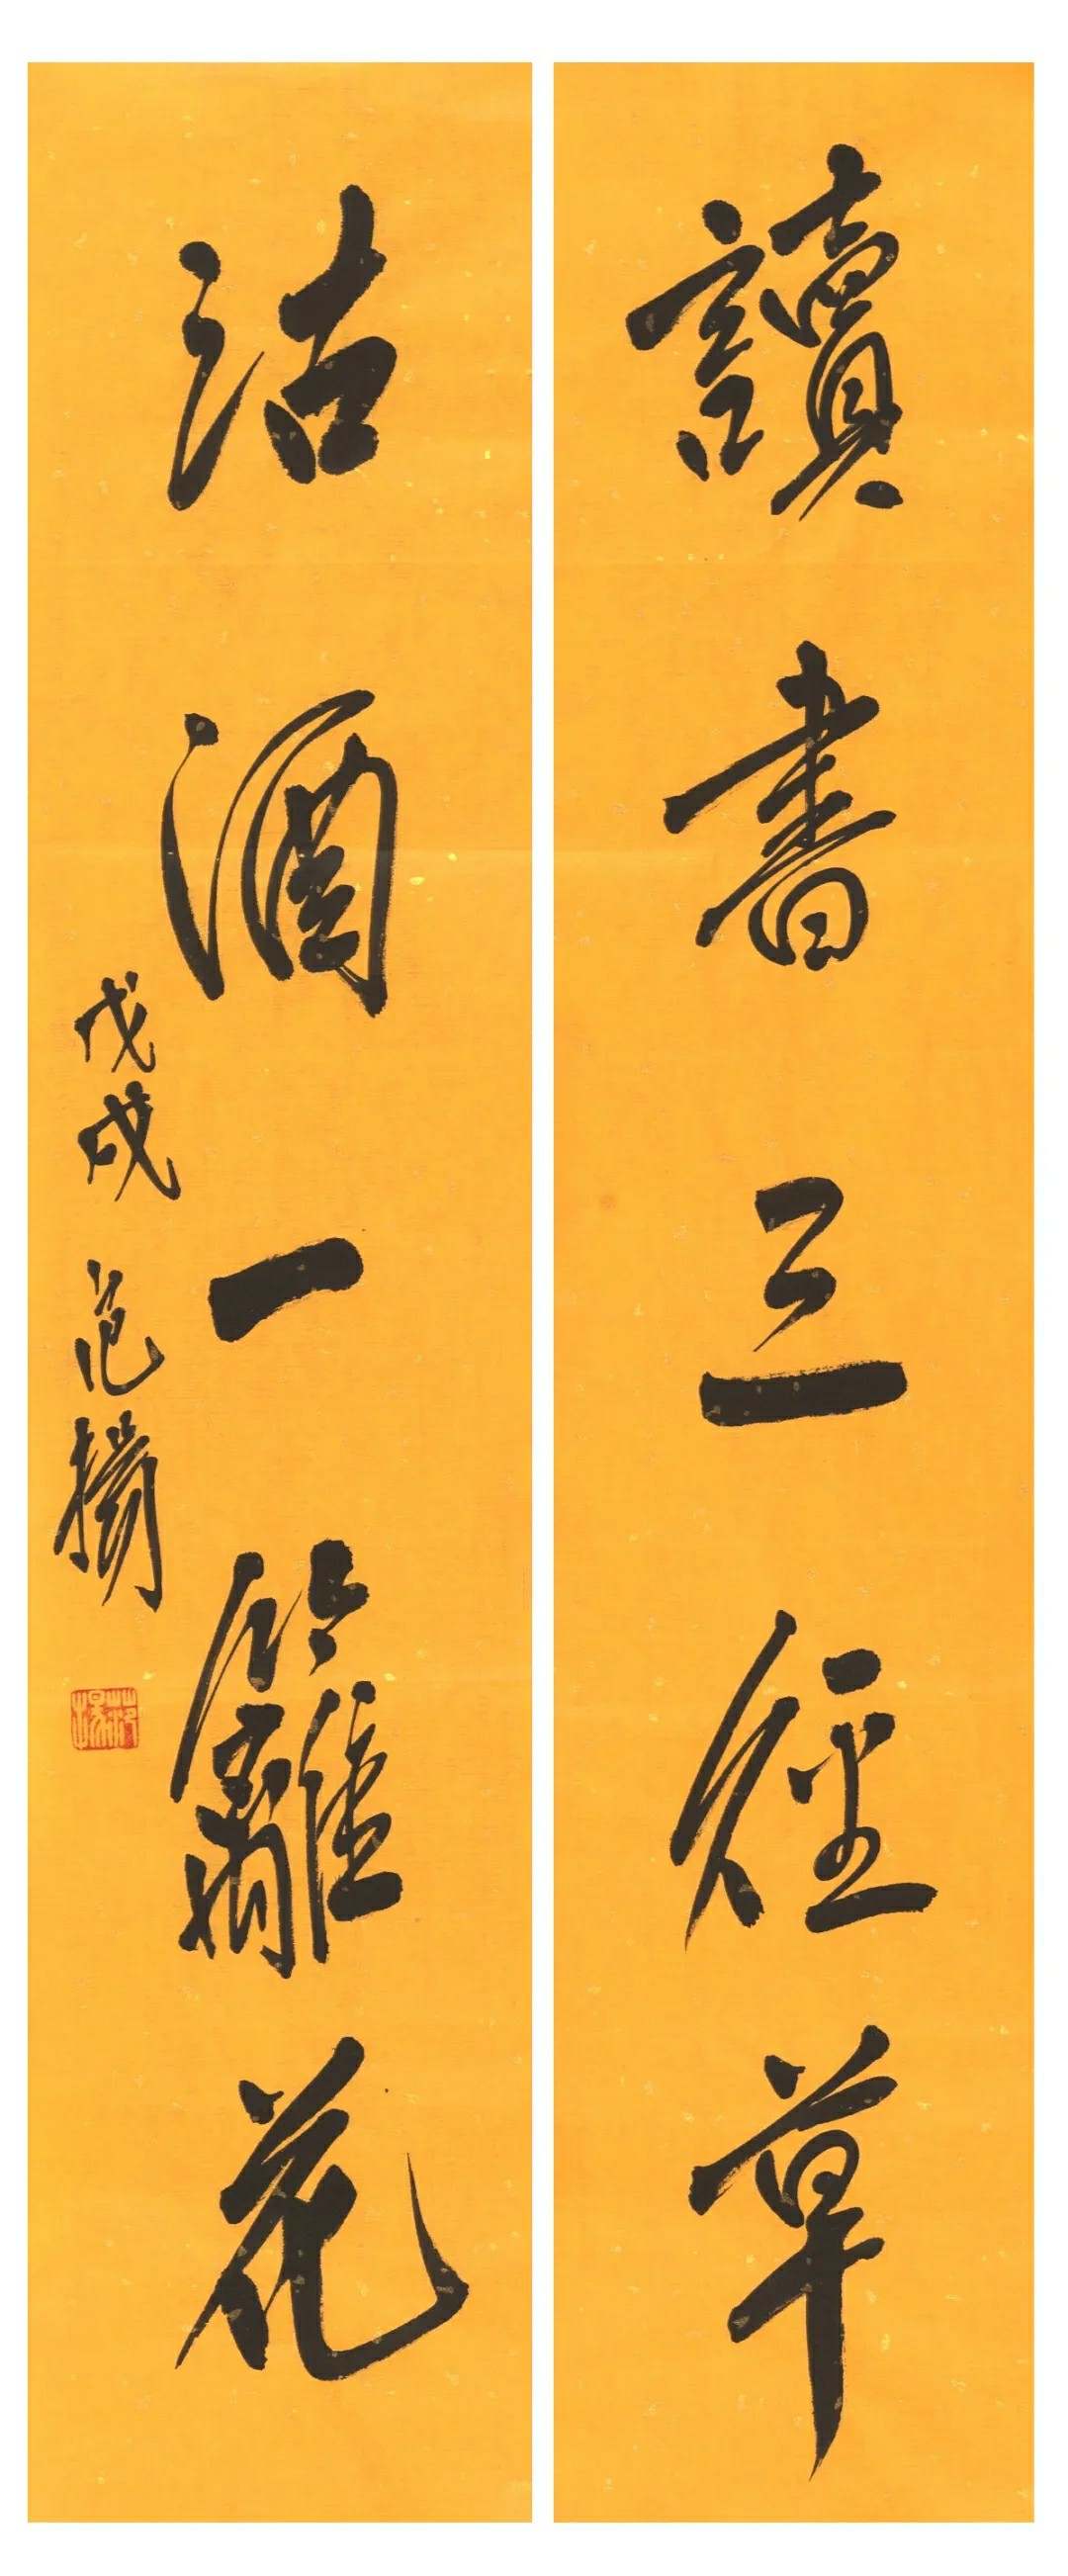 讀書三徑草
沽酒一籬花
戊戌 范揚